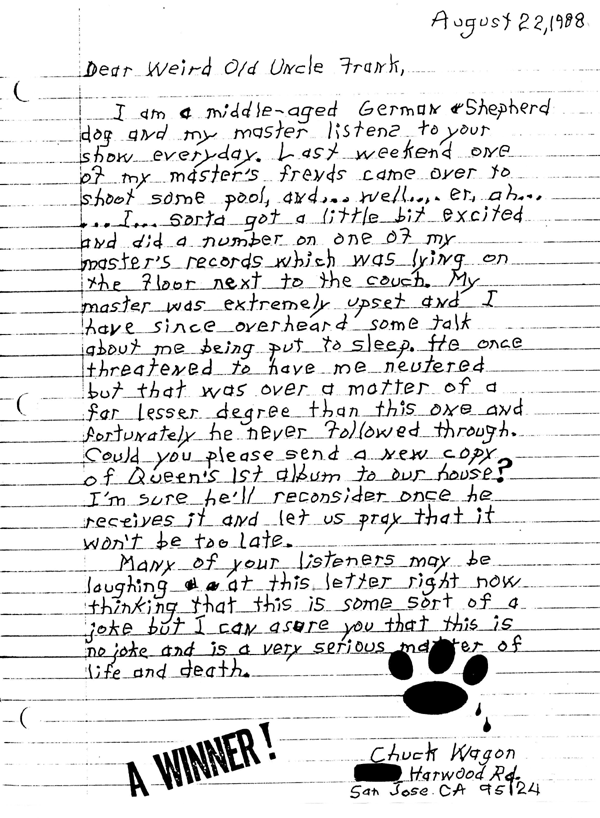 August 22, 1988
Dear Weird Old Uncle Frank,
I am a middle-aged German Shepherd
dog and my master listens to your
show everyday. Last weekend one
of my master's frends came over to
shoot some pool, and... well.... er, ah...
... I... sorta got a little bit excited
and did a number on one of my
master's records which was lying on
the floor next to the couch. My
master was extremely upset and I
have since overheard some talk
about me being put to sleep. He once
threatened to have me neutered
but that was over a matter of a
far lesser degree than this one and
fortunately he never followed through.
Could you please send a new copy
of Queen's 1st album to our house?
I'm sure he'll reconsider once he
receives it and let us pray that it
won't be too late.
Many of your listeners may be
laughing at this letter right now
thinking that this is some sort of a
joke but I can asure you that this is
no joke and is a very serious matter of
life and death.
A WINNER!
Chuck Wagon
Harwood Rd.
San Jose CA 95124